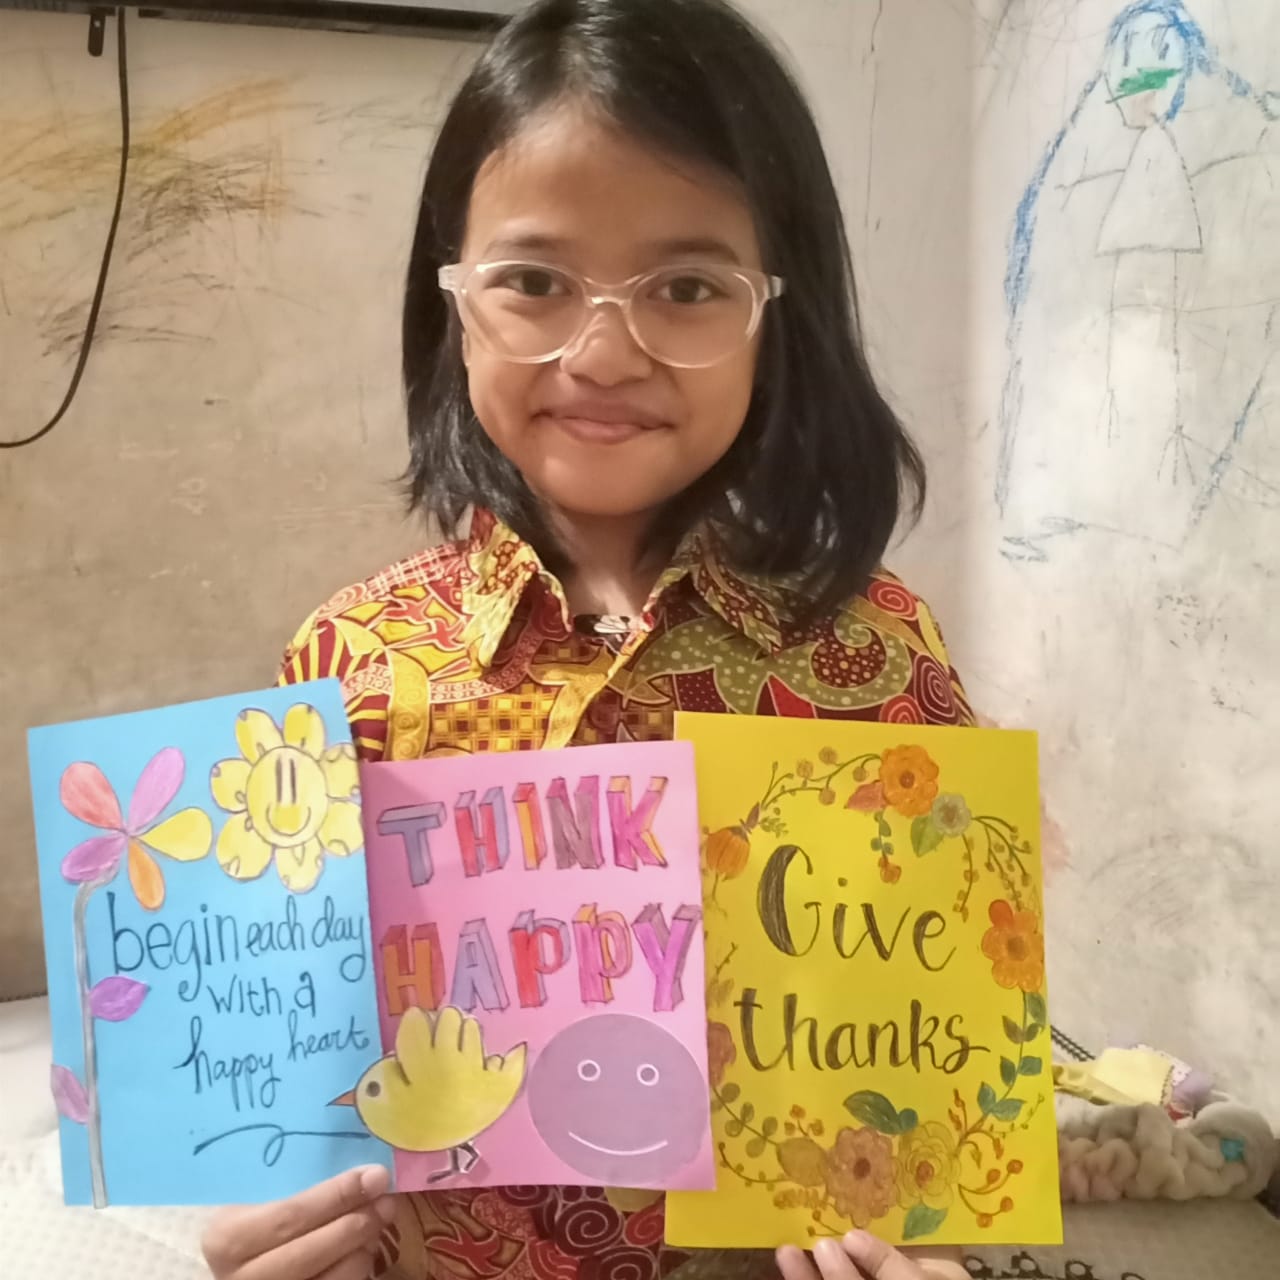 begin each day
with a
happy heart
THINK
HAPPY
Give
thanks